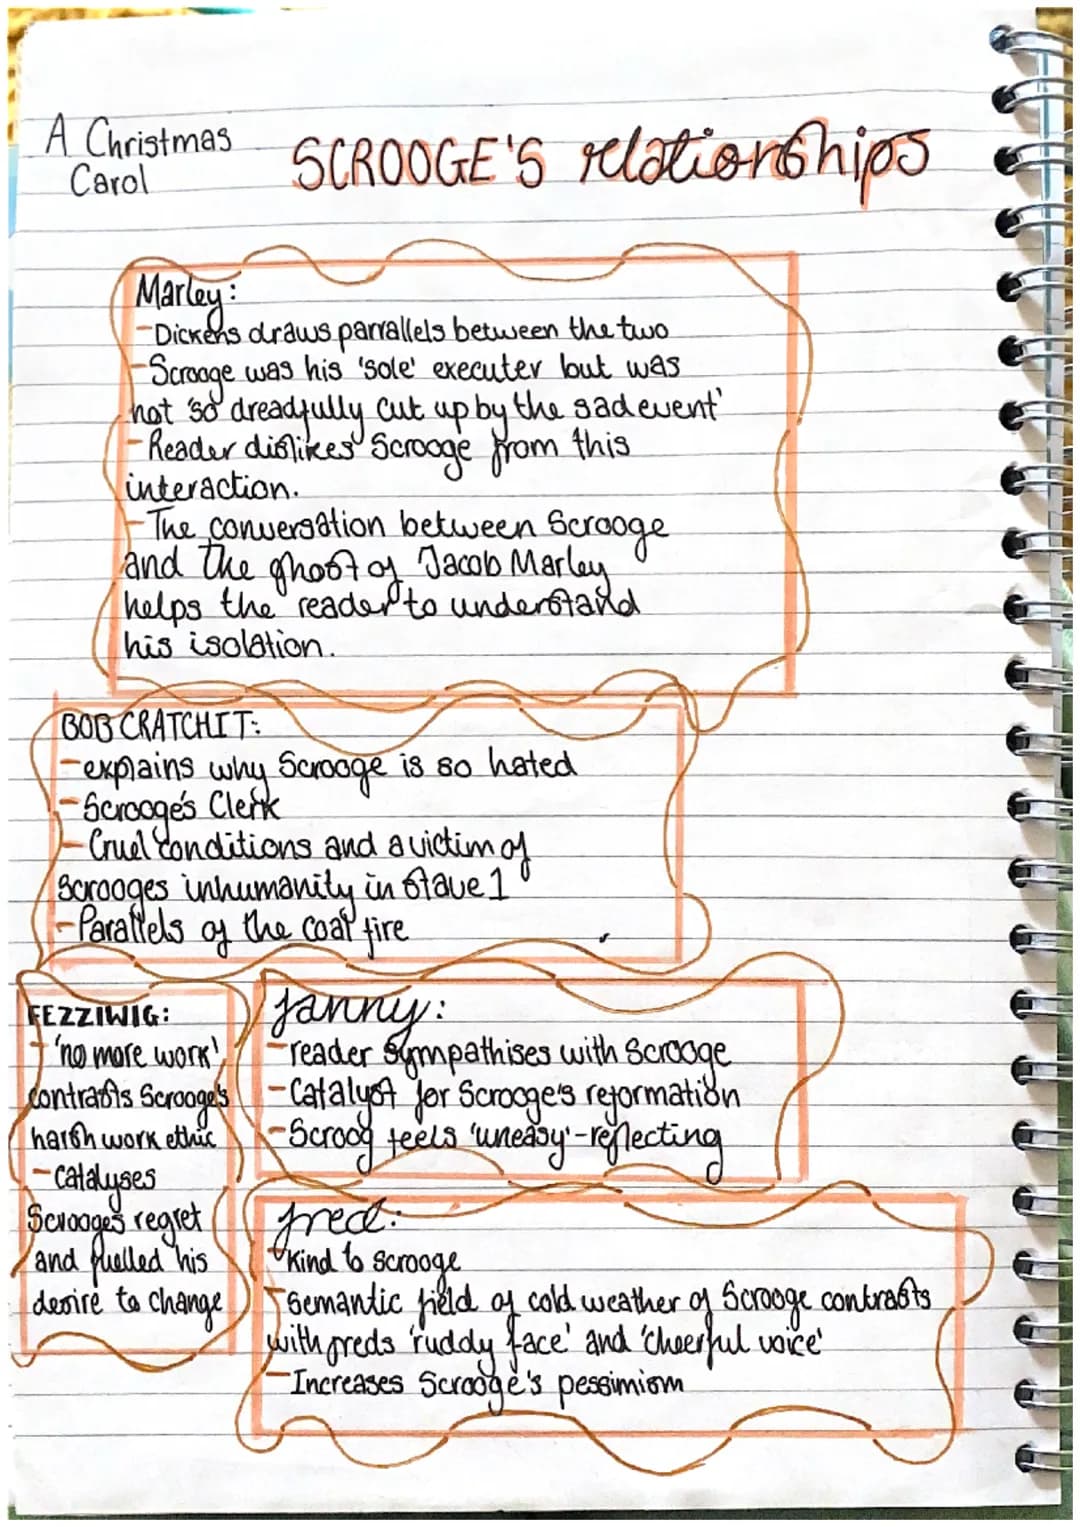 A Christmas
Carol
SCROOGE'S relationships
Marley:
-Dickens draws parrallels between the two
-Scrooge was his 'sole' executer but was
not 'so dreadfully cut up by the sad event'
-Reader dislikes Scrooge from this
interaction.
-The conversation between Scrooge
and the ghost of Jacob Marley
helps the reader to understand
his isolation.
BOB CRATCHIT:
-explains why Scrooge is so hated
-Scrooge's Clerk
-Cruel conditions and a victim of
Scrooges inhumanity in Stave 1
-Parallels of the coal fire
FEZZIWIG:
- 'no more work'
contrasts Scrooge's
harsh work ethic
-Catalyses
Scrooge's regret
and fuelled his
desire to change
fanny:
-reader sympathises with Scrooge
-Catalyst for Scrooge's reformation
-Scroog feels 'uneasy'-reflecting
fred:
-Kind to Scrooge
-Semantic field of cold weather of Scrooge contrasts
with freds 'ruddy face' and 'cheerful voice'
-Increases Scrooge's pessimism